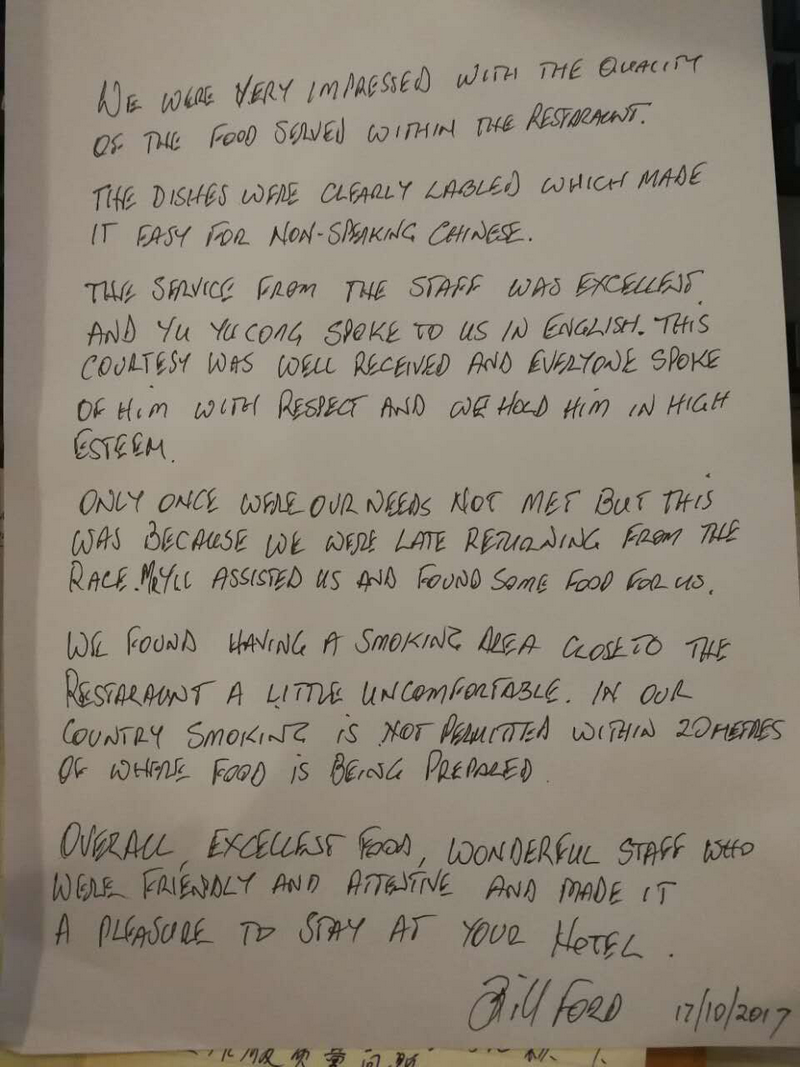 WE WERE VERY IMPRESSED WITH THE QUALITY
OF THE FOOD SERVED WITHIN THE RESTARAUNT.
THE DISHES WERE CLEARLY LABLED WHICH MADE
IT EASY FOR NON-SPEAKING CHINESE.
THE SERVICE FROM THE STAFF WAS EXCELLENT
AND YU YUCONG SPOKE TO US IN ENGLISH. THIS
COURTESY WAS WELL RECEIVED AND EVERYONE SPOKE
OF HIM WITH RESPECT AND WE HOLD HIM IN HIGH
ESTEEM.
ONLY ONCE WERE OUR NEEDS NOT MET BUT THIS
WAS BECAUSE WE WERE LATE RETURNING FROM THE
RACE. ASSISTED US AND FOUND SOME FOOD FOR US.
WE FOUND HAVING A SMOKING AREA CLOSE TO THE
RESTARAUNT A LITTLE UNCOMFORTABLE. IN OUR
COUNTRY SMOKING IS NOT PERMITTED WITHIN 20 METRES
OF WHERE FOOD IS BEING PREPARED.
OVERALL, EXCELLENT FOOD, WONDERFUL STAFF WHO
WERE FRIENDLY AND ATTENTIVE AND MADE IT
A PLEASURE TO STAY AT YOUR HOTEL.
Bill FORD 17/10/2017